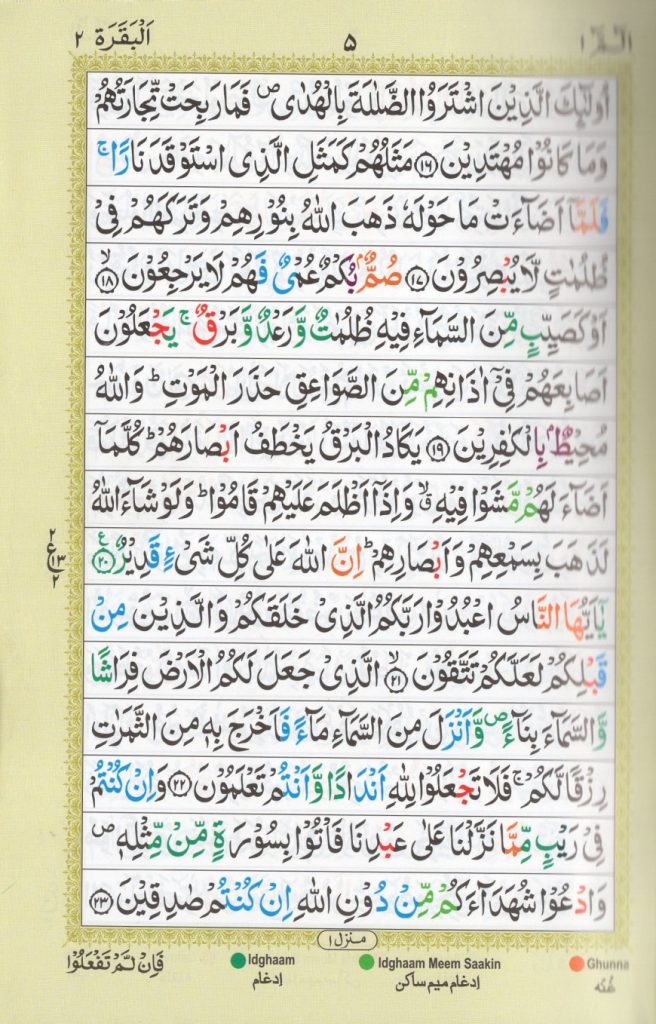 الٓمّٓ ١ ٥ اَلْبَقَرَة ٢
اُولٰٓئِكَ الَّذِيْنَ اشْتَرَوُا الضَّلٰلَةَ بِالْهُدٰى ۪ فَمَا رَبِحَتْ تِّجَارَتُهُمْ
وَمَا كَانُوْا مُهْتَدِيْنَ ۝۱۶ مَثَلُهُمْ كَمَثَلِ الَّذِى اسْتَوْقَدَ نَارًا ۚ
فَلَمَّاۤ اَضَآءَتْ مَا حَوْلَهٗ ذَهَبَ اللّٰهُ بِنُوْرِهِمْ وَتَرَكَهُمْ فِىْ
ظُلُمٰتٍ لَّا يُبْصِرُوْنَ ۝۱۷ صُمٌّۢ بُكْمٌ عُمْىٌ فَهُمْ لَا يَرْجِعُوْنَ ۙ۝۱۸
اَوْ كَصَيِّبٍ مِّنَ السَّمَآءِ فِيْهِ ظُلُمٰتٌ وَّرَعْدٌ وَّبَرْقٌ ۚ يَجْعَلُوْنَ
اَصَابِعَهُمْ فِىْۤ اٰذَانِهِمْ مِّنَ الصَّوَاعِقِ حَذَرَ الْمَوْتِ ؕ وَاللّٰهُ
مُحِيْطٌۢ بِالْكٰفِرِيْنَ ۝۱۹ يَكَادُ الْبَرْقُ يَخْطَفُ اَبْصَارَهُمْ ؕ كُلَّمَاۤ
اَضَآءَ لَهُمْ مَّشَوْا فِيْهِ ۙ وَاِذَاۤ اَظْلَمَ عَلَيْهِمْ قَامُوْا ؕ وَلَوْ شَآءَ اللّٰهُ
لَذَهَبَ بِسَمْعِهِمْ وَاَبْصَارِهِمْ ؕ اِنَّ اللّٰهَ عَلٰى كُلِّ شَىْءٍ قَدِيْرٌ ۝۲۰ ع
۲
ع ۱۳
۲
يٰۤاَيُّهَا النَّاسُ اعْبُدُوْا رَبَّكُمُ الَّذِىْ خَلَقَكُمْ وَالَّذِيْنَ مِنْ
قَبْلِكُمْ لَعَلَّكُمْ تَتَّقُوْنَ ۙ۝۲۱ الَّذِىْ جَعَلَ لَكُمُ الْاَرْضَ فِرَاشًا
وَّالسَّمَآءَ بِنَآءً ۪ وَّاَنْزَلَ مِنَ السَّمَآءِ مَآءً فَاَخْرَجَ بِهٖ مِنَ الثَّمَرٰتِ
رِزْقًا لَّكُمْ ۚ فَلَا تَجْعَلُوْا لِلّٰهِ اَنْدَادًا وَّاَنْتُمْ تَعْلَمُوْنَ ۝۲۲ وَاِنْ كُنْتُمْ
فِىْ رَيْبٍ مِّمَّا نَزَّلْنَا عَلٰى عَبْدِنَا فَاْتُوْا بِسُوْرَةٍ مِّنْ مِّثْلِهٖ ۪
وَادْعُوْا شُهَدَآءَكُمْ مِّنْ دُوْنِ اللّٰهِ اِنْ كُنْتُمْ صٰدِقِيْنَ ۝۲۳
منزل ۱
فَاِنْ لَّمْ تَفْعَلُوْا Idghaam Idghaam Meem Saakin Ghunna
ادغام ادغام میم ساکن غنّہ